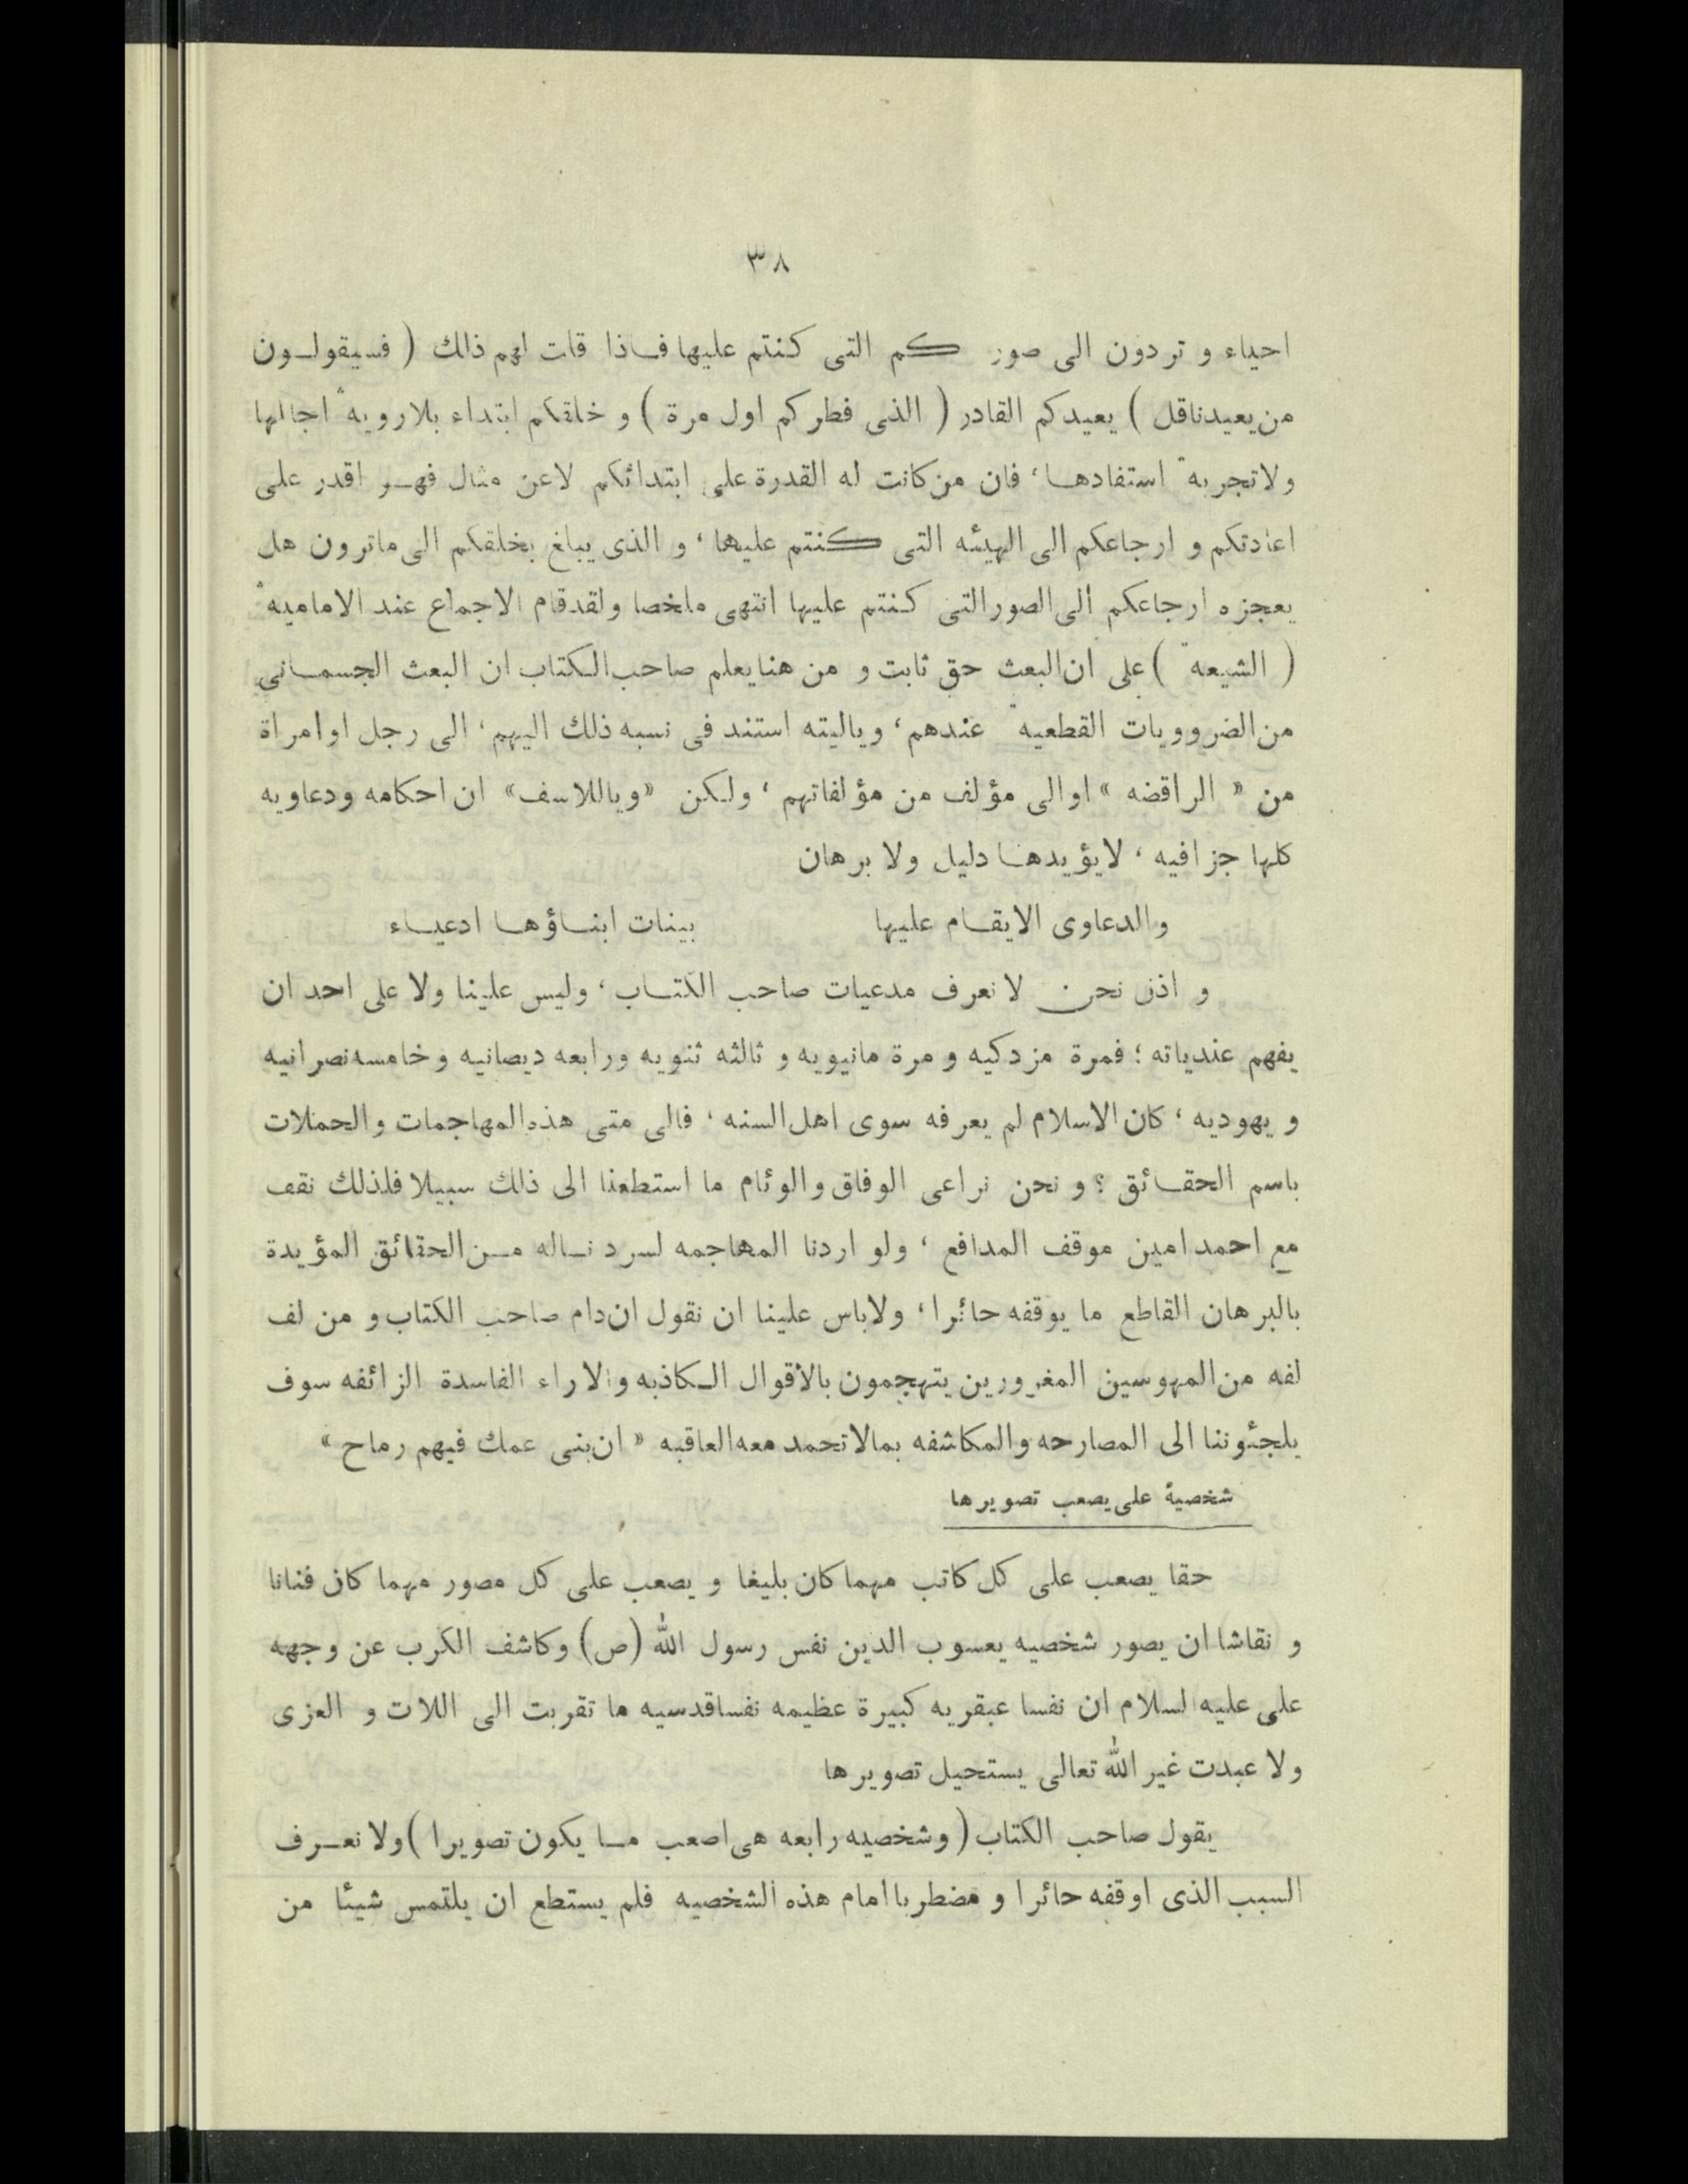 ٣٨
احياء و تردون الى صوركم التى كنتم عليها فاذا قلت لهم ذلك ( فسيقولون
من يعيدنا قل ) يعيدكم القادر ( الذى فطركم اول مرة ) و خلقكم ابتداء بلا رويه اجالها
ولا تجربه استفادها ، فان من كانت له القدرة على ابتدائكم لاعن مثال فهو اقدر على
اعادتكم و ارجاعكم الى الهيئه التى كنتم عليها ، و الذى يبلغ بخلقكم الى ماترون هل
يعجزه ارجاعكم الى الصور التى كنتم عليها انتهى ملخصا ولقد قام الاجماع عند الاماميه
( الشيعه ) على ان البعث حق ثابت و من هنا يعلم صاحب الكتاب ان البعث الجسمانى
من الضروويات القطعيه عندهم ، وياليته استند فى نسبه ذلك اليهم ، الى رجل او امراة
من « الراقضه » او الى مؤلف من مؤلفاتهم ، ولكن «وياللاسف» ان احكامه ودعاويه
كلها جزافيه ، لايؤيدها دليل ولا برهان
والدعاوى الايقام عليها بينات ابناؤها ادعياء
و اذن نحن لا نعرف مدعيات صاحب الكتاب ، وليس علينا ولا على احد ان
يفهم عندياته ؛ فمرة مزدكيه و مرة مانيويه و ثالثه ثنويه ورابعه ديصانيه و خامسه نصرانيه
و يهوديه ، كان الاسلام لم يعرفه سوى اهل السنه ، فالى متى هذه المهاجمات والحملات
باسم الحقائق ؟ و نحن نراعى الوفاق والوئام ما استطعنا الى ذلك سبيلا فلذلك نقف
مع احمد امين موقف المدافع ، ولو اردنا المهاجمه لسردناله من الحقائق المؤيدة
بالبرهان القاطع ما يوقفه حائرا ، ولاباس علينا ان نقول ان دام صاحب الكتاب و من لف
لفه من المهوسين المغرورين يتهجمون بالاقوال الكاذبه والاراء الفاسدة الزائفه سوف
يلجئوننا الى المصارحه والمكاشفه بمالاتحمد معه العاقبه « ان بنى عمك فيهم رماح »
شخصية على يصعب تصويرها
حقا يصعب على كل كاتب مهما كان بليغا و يصعب على كل مصور مهما كان فنانا
و نقاشا ان يصور شخصيه يعسوب الدين نفس رسول الله (ص) وكاشف الكرب عن وجهه
على عليه لسلام ان نفسا عبقريه كبيرة عظيمه نفسا قدسيه ما تقربت الى اللات و العزى
ولا عبدت غير الله تعالى يستحيل تصويرها
يقول صاحب الكتاب ( وشخصيه رابعه هى اصعب ما يكون تصويرا ) ولا نعرف
السبب الذى اوقفه حائرا و مضطربا امام هذه الشخصيه فلم يستطع ان يلتمس شيئا من